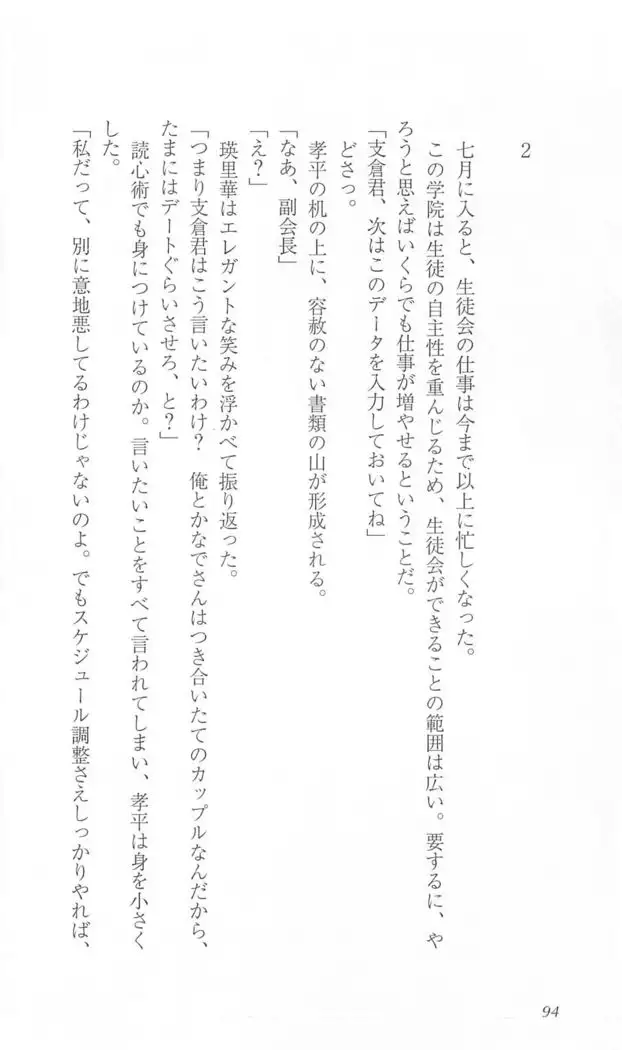 2
七月に入ると、生徒会の仕事は今まで以上に忙しくなった。
この学院は生徒の自主性を重んじるため、生徒会ができることの範囲は広い。要するに、や
ろうと思えばいくらでも仕事が増やせるということだ。
「支倉君、次はこのデータを入力しておいてね」
どさっ。
孝平の机の上に、容赦のない書類の山が形成される。
「なあ、副会長」
「え?」
瑛里華はエレガントな笑みを浮かべて振り返った。
「つまり支倉君はこう言いたいわけ?　俺とかなでさんはつき合いたてのカップルなんだから、
たまにはデートぐらいさせろ、と?」
読心術でも身につけているのか。言いたいことをすべて言われてしまい、孝平は身を小さく
した。
「私だって、別に意地悪してるわけじゃないのよ。でもスケジュール調整さえしっかりやれば、
94